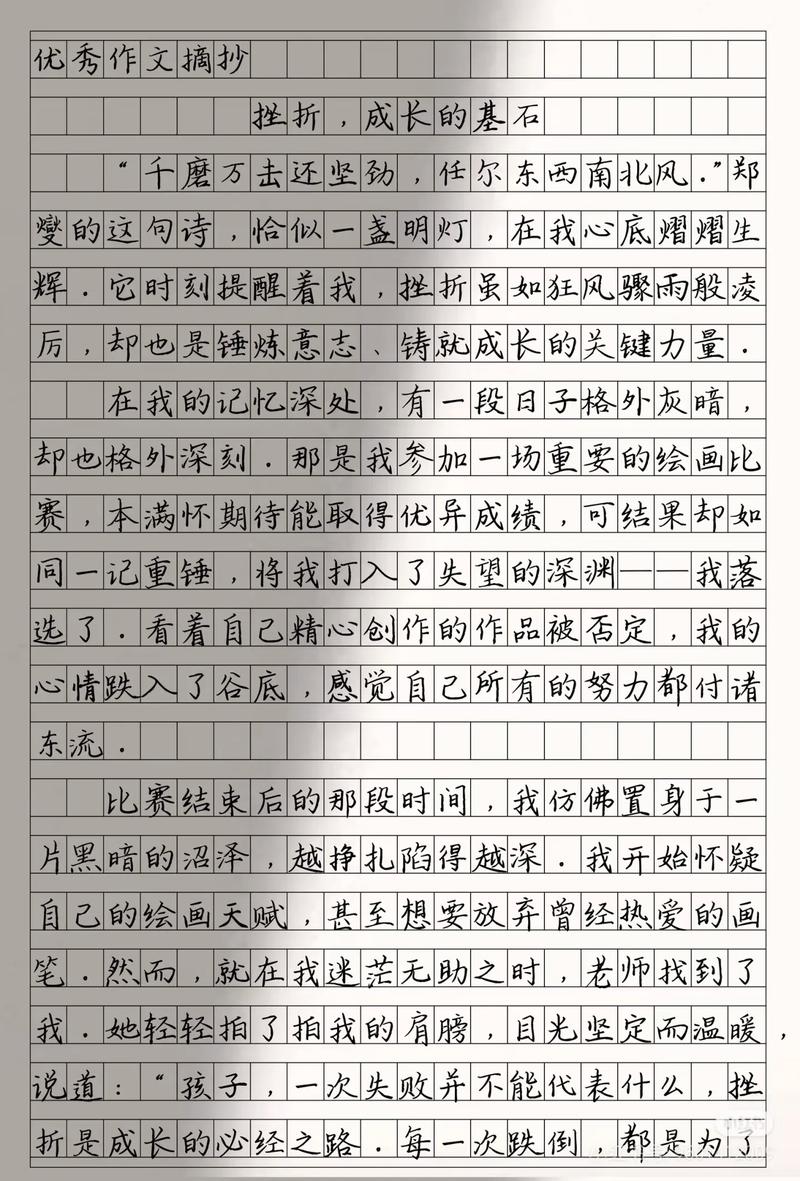 优秀作文摘抄
挫折，成长的基石
“千磨万击还坚劲，任尔东西南北风.”郑
燮的这句诗，恰似一盏明灯，在我心底熠熠生
辉.它时刻提醒着我，挫折虽如狂风骤雨般凌
厉，却也是锤炼意志、铸就成长的关键力量.
在我的记忆深处，有一段日子格外灰暗，
却也格外深刻.那是我参加一场重要的绘画比
赛，本满怀期待能取得优异成绩，可结果却如
同一记重锤，将我打入了失望的深渊——我落
选了.看着自己精心创作的作品被否定，我的
心情跌入了谷底，感觉自己所有的努力都付诸
东流.
比赛结束后的那段时间，我仿佛置身于一
片黑暗的沼泽，越挣扎陷得越深.我开始怀疑
自己的绘画天赋，甚至想要放弃曾经热爱的画
笔.然而，就在我迷茫无助之时，老师找到了
我.她轻轻拍了拍我的肩膀，目光坚定而温暖，
说道：“孩子，一次失败并不能代表什么，挫
折是成长的必经之路.每一次跌倒，都是为了